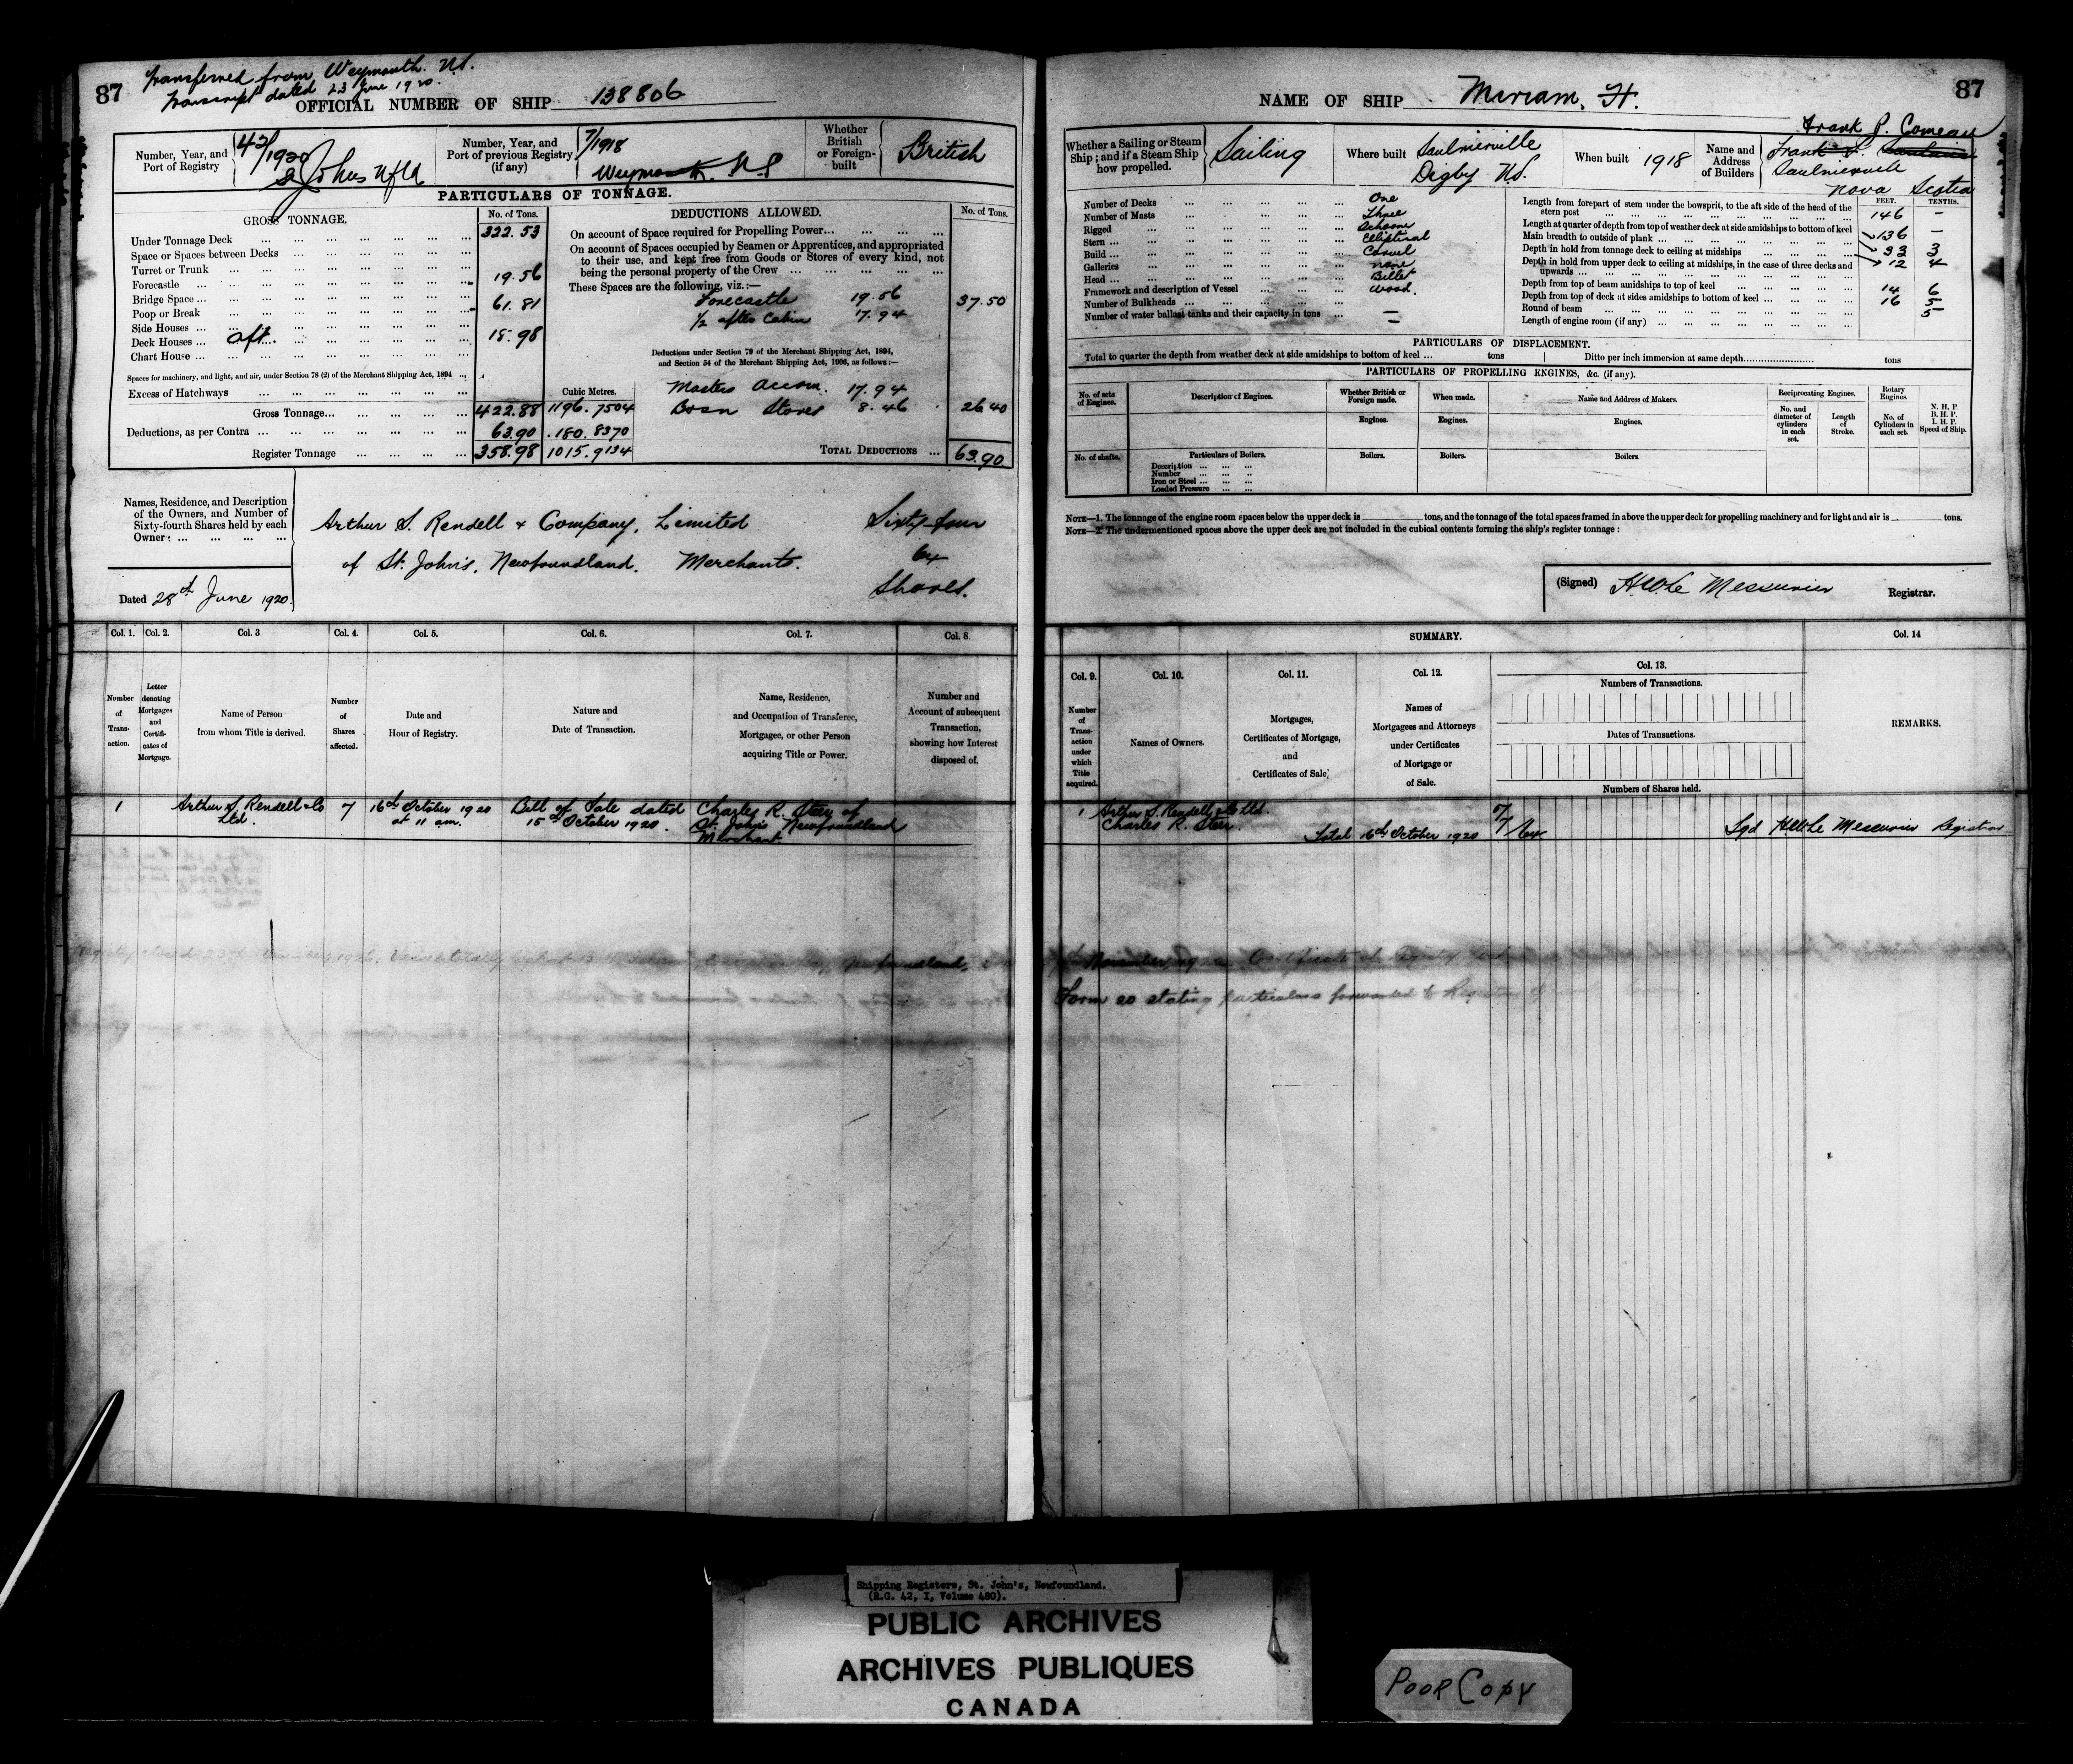 87
Transferred from Weymouth. N.S.
Transcript dated 23 June 1920.
OFFICIAL NUMBER OF SHIP 138806
Number, Year, and Port of Registry
42/1920 St Johns Nfld
Number, Year, and Port of previous Registry (if any)
7/1918
Weymouth. N.S
Whether British or Foreign-built
British
PARTICULARS OF TONNAGE.
GROSS TONNAGE.
No. of Tons.
Under Tonnage Deck ... 322.53
Space or Spaces between Decks ...
Turret or Trunk ...
Forecastle ... 19.56
Bridge Space ...
Poop or Break ... 61.81
Side Houses ...
Deck Houses ... aft ... 18.98
Chart House ...
Spaces for machinery, and light, and air, under Section 78 (2) of the Merchant Shipping Act, 1894 ...
Excess of Hatchways ...
Cubic Metres.
Gross Tonnage... 422.88 1196.7504
Deductions, as per Contra ... 63.90 180.8370
Register Tonnage ... 358.98 1015.9134
DEDUCTIONS ALLOWED.
No. of Tons.
On account of Space required for Propelling Power...
On account of Spaces occupied by Seamen or Apprentices, and appropriated
to their use, and kept free from Goods or Stores of every kind, not
being the personal property of the Crew ...
These Spaces are the following, viz.:—
Forecastle 19.56 37.50
1/2 after Cabin 17.94
Deductions under Section 79 of the Merchant Shipping Act, 1894,
and Section 54 of the Merchant Shipping Act, 1906, as follows:—
Masters accom. 17.94
Bosn Stores 8.46 26 40
TOTAL DEDUCTIONS ... 63.90
Names, Residence, and Description
of the Owners, and Number of
Sixty-fourth Shares held by each
Owner: ...
Arthur S. Rendell & Company, Limited Sixty-four
of St. John's, Newfoundland. Merchants. 64
Shares.
Dated 28th June 1920.
Col. 1. Col. 2. Col. 3 Col. 4. Col. 5. Col. 6. Col. 7. Col. 8
Number of Transaction.
Letter denoting Mortgages and Certificates of Mortgage.
Name of Person from whom Title is derived.
Number of Shares affected.
Date and Hour of Registry.
Nature and Date of Transaction.
Name, Residence, and Occupation of Transferee, Mortgagee, or other Person acquiring Title or Power.
Number and Account of subsequent Transaction, showing how Interest disposed of.
1 Arthur S. Rendell & Co Ltd. 7 16th October 1920 at 11 am. Bill of Sale dated 15th October 1920. Charles R. Steer of St. John's Newfoundland Merchant
87
NAME OF SHIP Miriam. H.
Whether a Sailing or Steam Ship; and if a Steam Ship how propelled.
Sailing
Where built
Saulnierville
Digby N.S.
When built 1918
Name and Address of Builders
Frank P. Comeau
Saulnierville
Nova Scotia
Number of Decks ... One
Number of Masts ... Three
Rigged ... Schooner
Stern ... Elliptical
Build ... Carvel
Galleries ... none
Head ... Billet
Framework and description of Vessel ... Wood.
Number of Bulkheads ... —
Number of water ballast tanks and their capacity in tons ... —
FEET. TENTHS.
Length from forepart of stem under the bowsprit, to the aft side of the head of the
stern post ... 146 —
Length at quarter of depth from top of weather deck at side amidships to bottom of keel 136 —
Main breadth to outside of plank ... 33 3
Depth in hold from tonnage deck to ceiling at midships ... 12 4
Depth in hold from upper deck to ceiling at midships, in the case of three decks and
upwards ...
Depth from top of beam amidships to top of keel ... 14 6
Depth from top of deck at sides amidships to bottom of keel ... 16 5
Round of beam ... 5
Length of engine room (if any) ...
PARTICULARS OF DISPLACEMENT.
Total to quarter the depth from weather deck at side amidships to bottom of keel ... tons
Ditto per inch immersion at same depth... tons
PARTICULARS OF PROPELLING ENGINES, &c. (if any).
No. of sets of Engines.
Description of Engines.
Whether British or Foreign made.
When made.
Name and Address of Makers.
Reciprocating Engines.
Rotary Engines.
No. and diameter of cylinders in each set.
Length of Stroke.
No. of Cylinders in each set.
N. H. P.
B. H. P.
I. H. P.
Speed of Ship.
Engines. Engines. Engines.
No. of shafts.
Particulars of Boilers.
Description ...
Number ...
Iron or Steel ...
Loaded Pressure ...
Boilers. Boilers. Boilers.
NOTE—1. The tonnage of the engine room spaces below the upper deck is tons, and the tonnage of the total spaces framed in above the upper deck for propelling machinery and for light and air is tons.
NOTE—2. The undermentioned spaces above the upper deck are not included in the cubical contents forming the ship's register tonnage:
(Signed) H.W. Le Messurier Registrar.
SUMMARY.
Col. 9. Col. 10. Col. 11. Col. 12. Col. 13. Col. 14
Number of Transaction under which Title acquired.
Names of Owners.
Mortgages, Certificates of Mortgage, and Certificates of Sale.
Names of Mortgagees and Attorneys under Certificates of Mortgage or of Sale.
Numbers of Transactions.
Dates of Transactions.
Numbers of Shares held.
REMARKS.
Arthur S. Rendell & Co Ltd. 57
1 Charles R. Steer. 7/64
Total 16th October 1920
Sgd H.W. Le Messurier Registrar
Form 20 stating particulars forwarded to Registrar
Shipping Registers, St. John's, Newfoundland.
(R.G. 42, I, Volume 480).
PUBLIC ARCHIVES
ARCHIVES PUBLIQUES
CANADA
POOR COPY